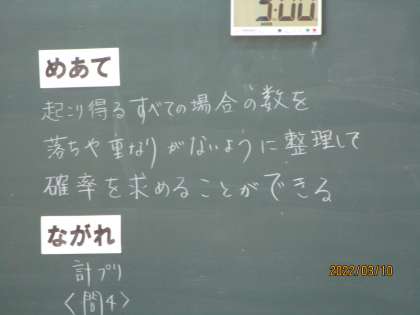 3:00
めあて
起こり得るすべての場合の数を
落ちや重なりがないように整理して
確率を求めることができる
ながれ
計プリ
〈問4〉
2022/03/10